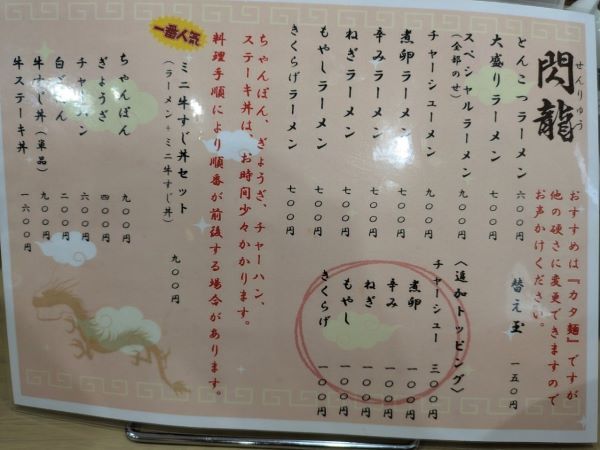 せんりゅう
閃龍
おすすめは『カタ麺』ですが
他の硬さに変更できますので
お声かけください。
とんこつラーメン 六〇〇円
替え玉 一五〇円
大盛りラーメン 七〇〇円
スペシャルラーメン 九〇〇円
(全部のせ)
チャーシューメン 九〇〇円
煮卵ラーメン 七〇〇円
辛みラーメン 七〇〇円
ねぎラーメン 七〇〇円
もやしラーメン 七〇〇円
きくらげラーメン 七〇〇円
〈追加トッピング〉
チャーシュー 三〇〇円
煮卵 一〇〇円
辛み 一〇〇円
ねぎ 一〇〇円
もやし 一〇〇円
きくらげ 一〇〇円
ちゃんぽん、ぎょうざ、チャーハン、
ステーキ丼は、お時間少々かかります。
料理手順により順番が前後する場合があります。
一番人気
ミニ牛すじ丼セット 九〇〇円
(ラーメン+ミニ牛すじ丼)
ちゃんぽん 九〇〇円
ぎょうざ 四〇〇円
チャーハン 六〇〇円
白ごはん 二〇〇円
牛すじ丼(単品) 九〇〇円
牛ステーキ丼 一六〇〇円